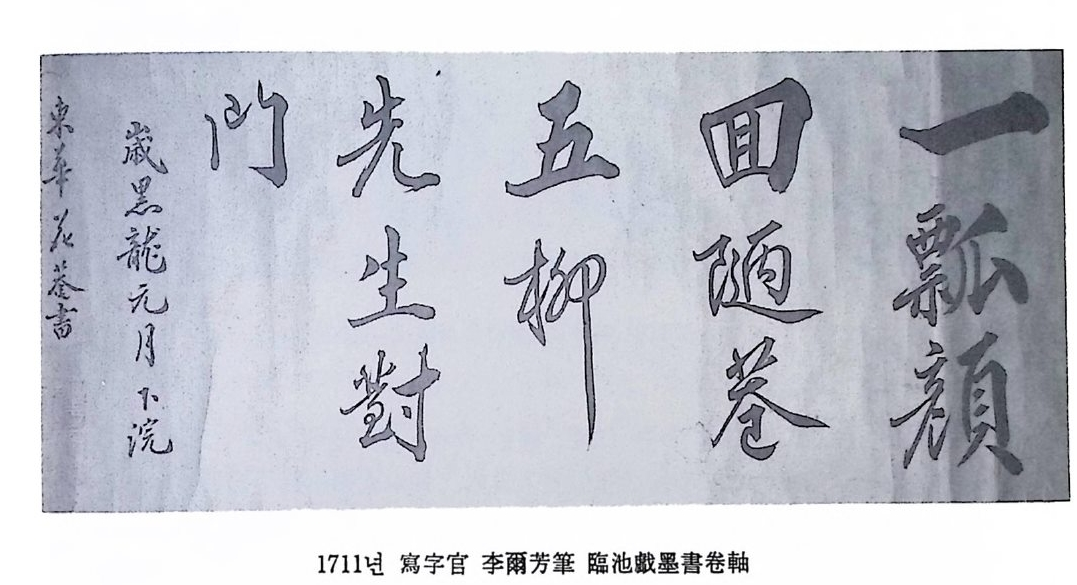 一瓢顔
回陋巷
五柳
先生對
門
歲黑龍元月下浣
東華花菴書
1711년 寫字官 李爾芳筆 臨池戱墨書卷軸